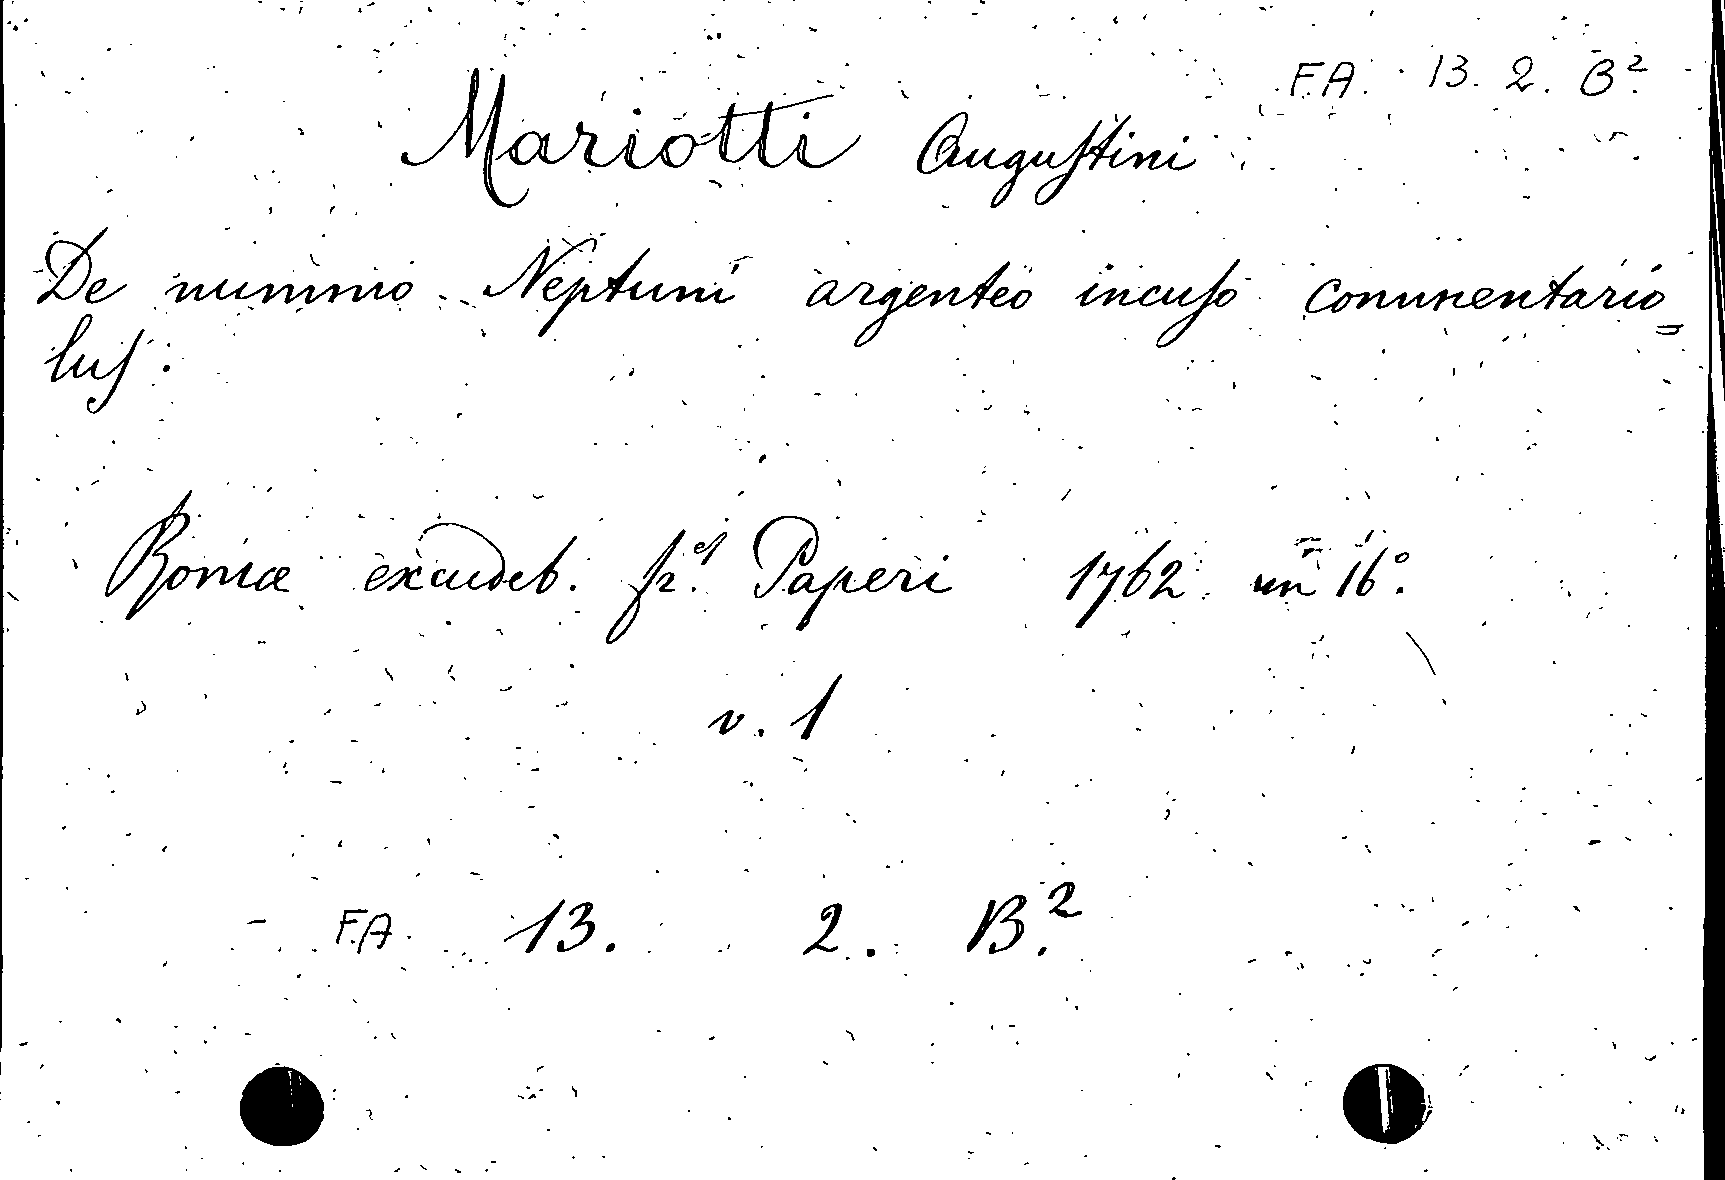 F.A. 13. 2. B.²
Mariotti Augustini
De nummo Neptuni argenteo incuso commentario=
lus.
Romæ excudeb. fr.es Paperi 1762 un 16°.
v. 1
F.A. 13. 2. B.²